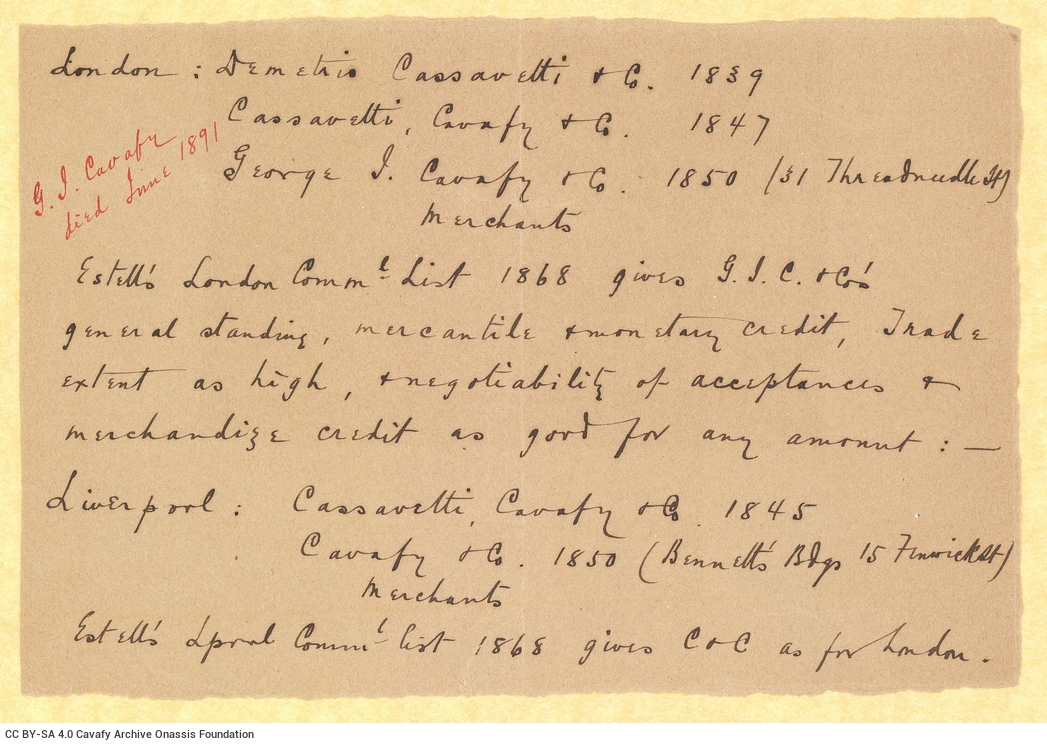 London : Demetrio Cassavetti & Co. 1839
Cassavetti, Cavafy & Co. 1847
G. I. Cavafy
died June 1891
George I. Cavafy & Co. 1850 (31 Threadneedle St)
Merchants
Estell's London Comml List 1868 gives G.I.C. & Co's
general standing, mercantile & monetary credit, Trade
extent as high, & negotiability of acceptances &
merchandize credit as good for any amount : —
Liverpool : Cassavetti, Cavafy & Co. 1845
Cavafy & Co. 1850 (Bennett's Bdgs 15 Fenwick St)
Merchants
Estell's Lpool Comml list 1868 gives C & C as for London.
CC BY-SA 4.0 Cavafy Archive Onassis Foundation